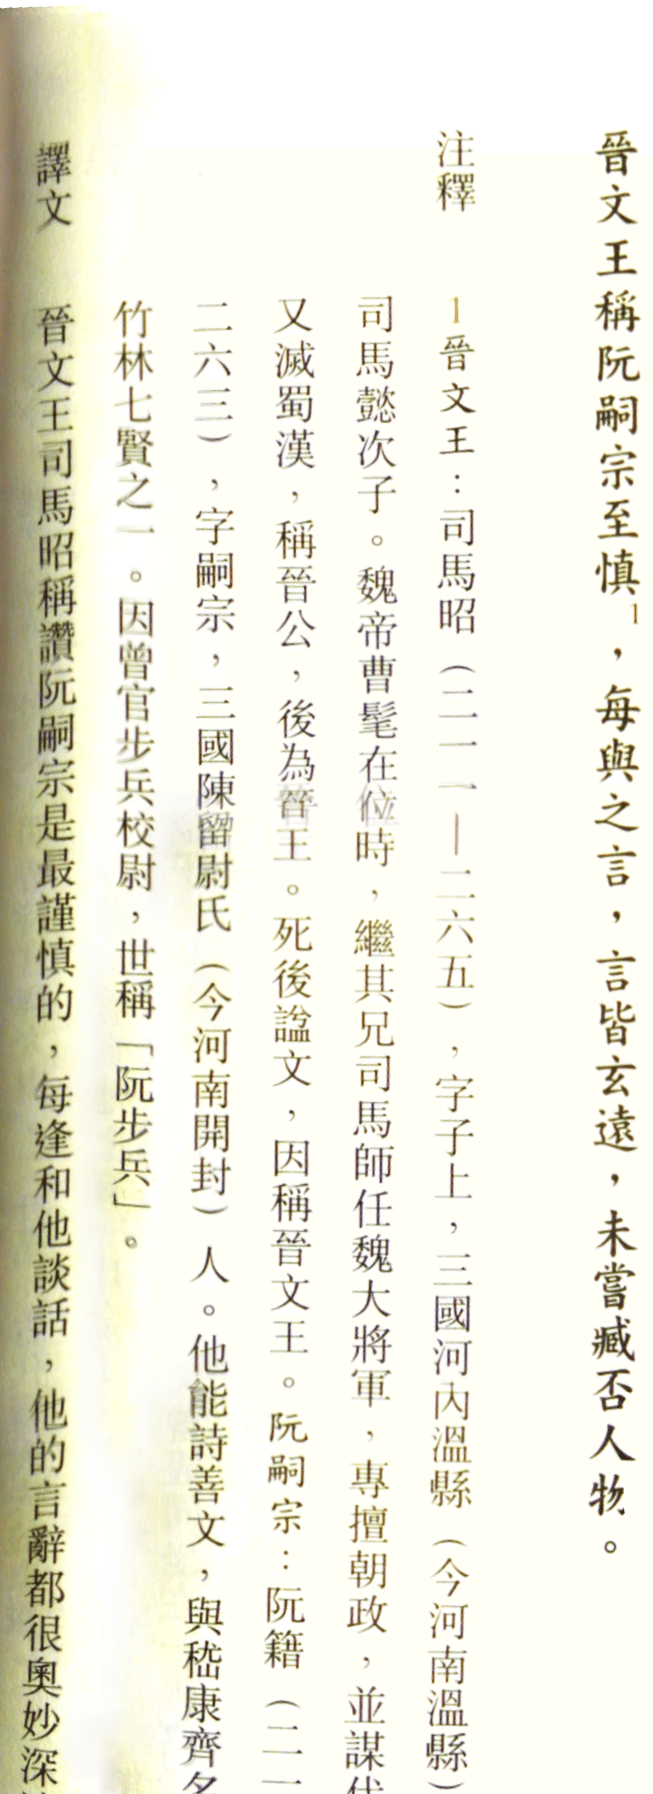 晉文王稱阮嗣宗至慎1，每與之言，言皆玄遠，未嘗臧否人物。
注釋
1晉文王：司馬昭（二一一—二六五），字子上，三國河內溫縣（今河南溫縣）
司馬懿次子。魏帝曹髦在位時，繼其兄司馬師任魏大將軍，專擅朝政，並謀代
又滅蜀漢，稱晉公，後為晉王。死後諡文，因稱晉文王。阮嗣宗：阮籍（二一
二六三），字嗣宗，三國陳留尉氏（今河南開封）人。他能詩善文，與嵇康齊名
竹林七賢之一。因曾官步兵校尉，世稱「阮步兵」。
譯文
晉文王司馬昭稱讚阮嗣宗是最謹慎的，每逢和他談話，他的言辭都很奧妙深